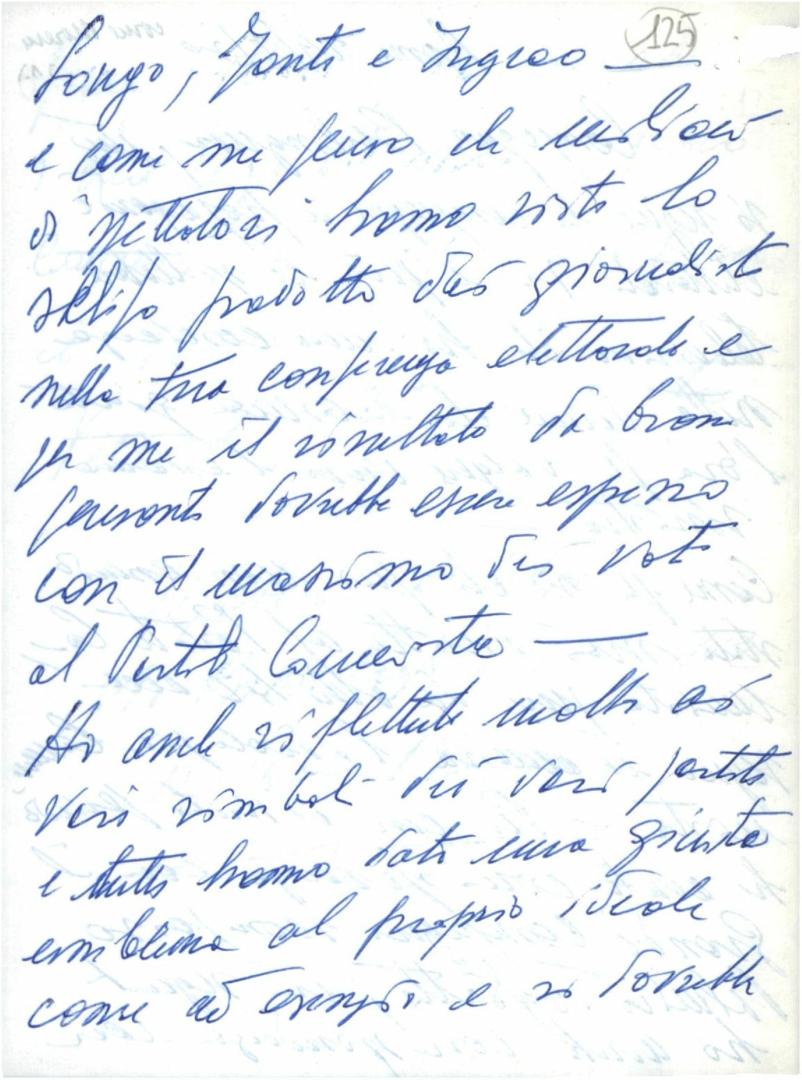 125
Longo, Jonti e Ingrao —
e come me penso che milioni
di spettatori hanno visto lo
schifo prodotto dai giornalisti
nella tua conferenza elettorale e
per me il risultato da buon
pensanti dovrebbe essere espresso
con il massimo dei voti
al Partito Comunista —
Ho anche riflettuto molto ai
veri simboli dei vari partiti
e tutti hanno dato una giusta
emblema al proprio ideale
come ad esempio e si dovrebbe